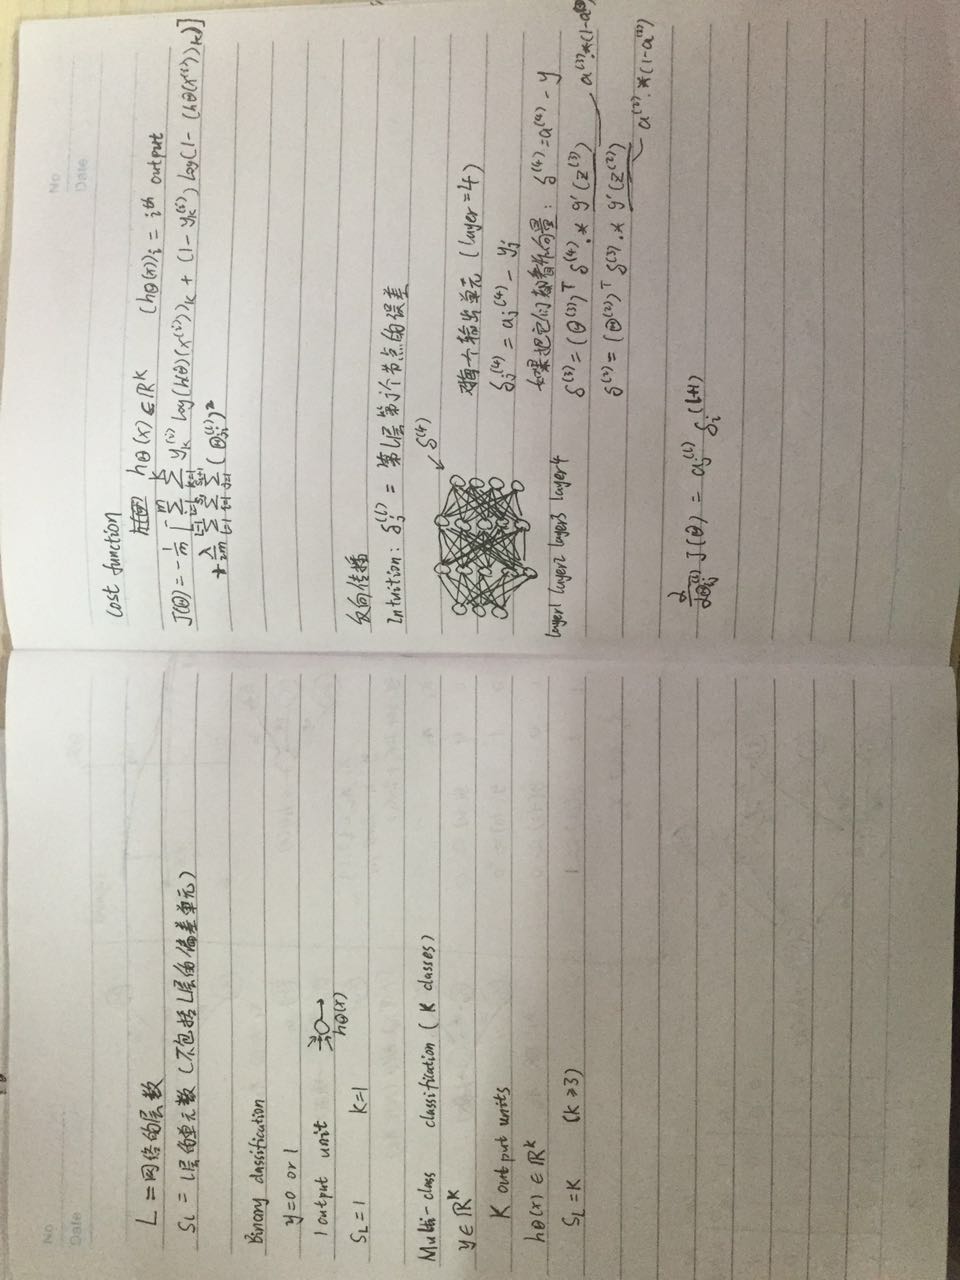 No
Date
L = 网络的层数
Sl = l层的单元数 (不包括L层的偏差单元)
Binary classification
y=0 or 1
1 output unit
hθ(x)
SL=1 K=1
Multi-class classification (K classes)
y∈ℝ^K
K output units
hθ(x) ∈ ℝ^K
SL=K (K≥3)
No
Date
Cost function
hθ(x)∈ℝ^K (hθ(x))i = i^th output
J(Θ) = -1/m [ Σ_{i=1}^m Σ_{k=1}^K y_k^(i) log(hθ)(x^(i))_k + (1-y_k^(i)) log(1-(hθ(x^(i)))_k) ]
+ λ/2m Σ_{l=1}^{L-1} Σ_{i=1}^{sl} Σ_{j=1}^{sl+1} (Θ_ji^(l))²
反向传播
Intuition: δ_j^(l) = 第l层第j个节点的误差
δ^(4)
layer1 layer2 layer3 layer4
对每个输出单元 (layer=4)
δ_j^(4) = a_j^(4) - y_j
如果把它们都看作向量: δ^(4) = a^(4) - y
δ^(3) = (Θ^(3))^T δ^(4) .* g'(z^(3)) a^(3) .* (1-a^(3))
δ^(2) = (Θ^(2))^T δ^(3) .* g'(z^(2)) a^(2) .* (1-a^(2))
∂/∂Θ_ij^(l) J(Θ) = a_j^(l) δ_i^(l+1)